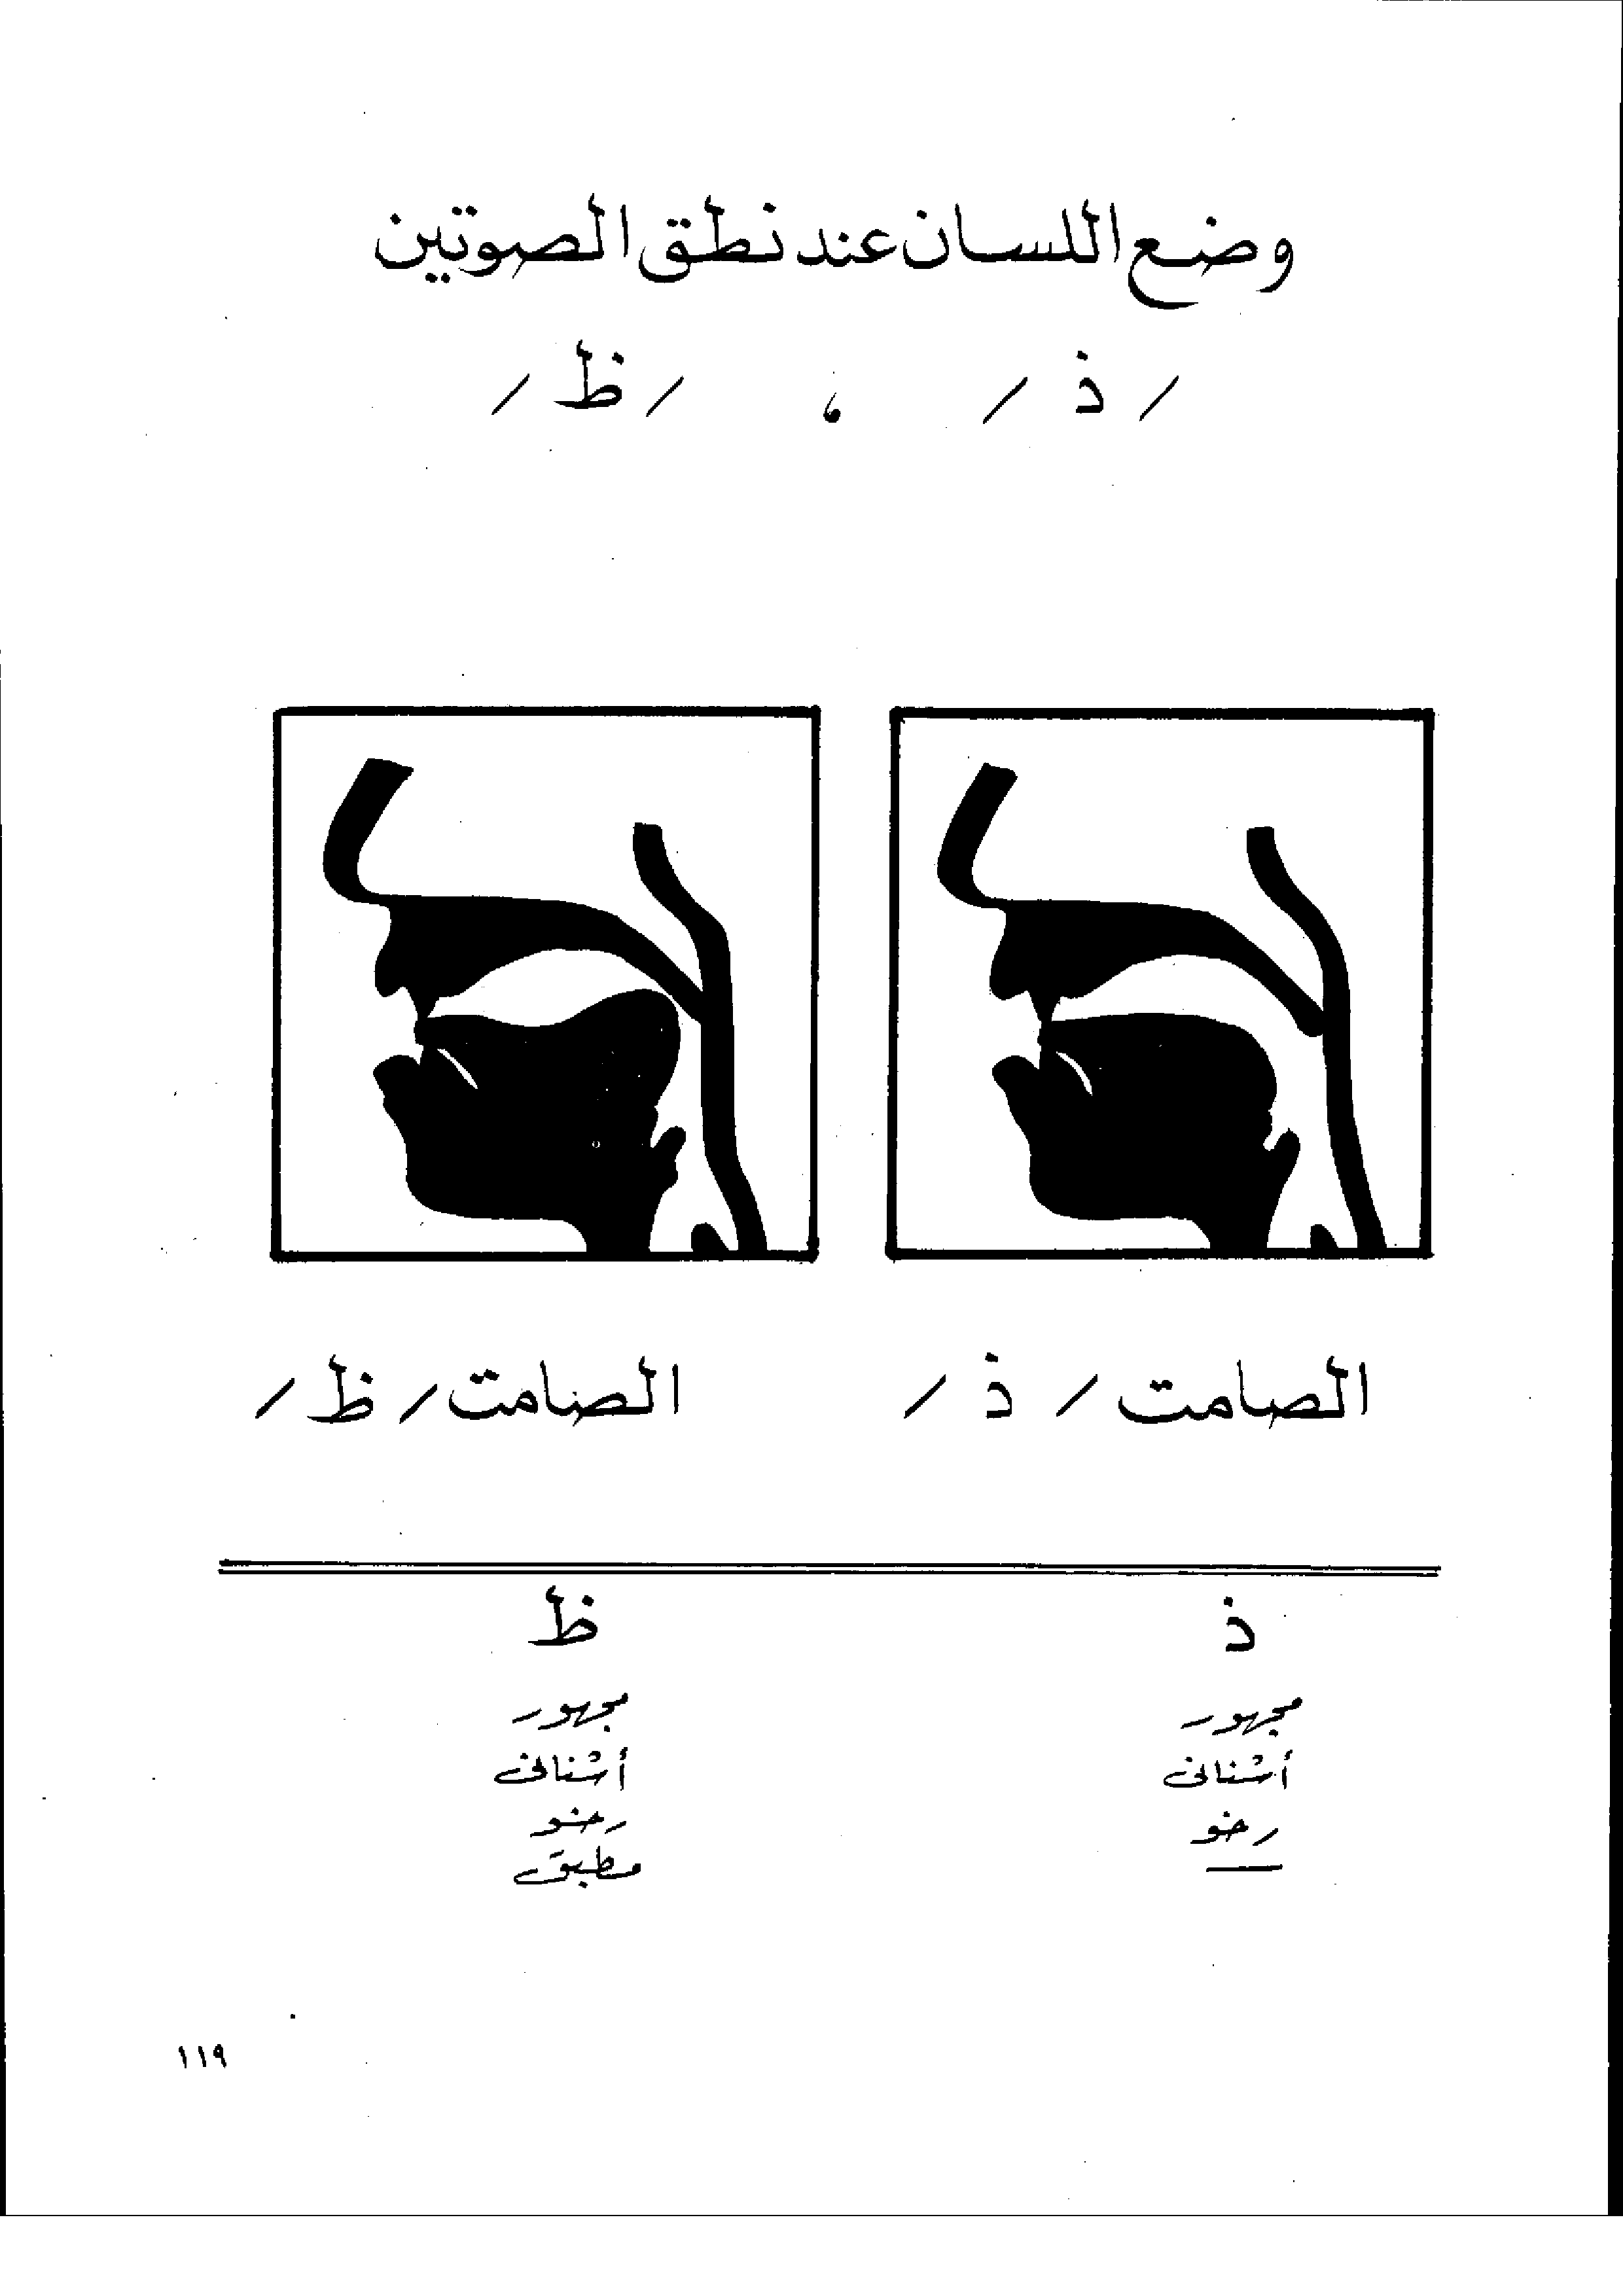 وضع اللسان عند نطق الصوتين
/ ذ / ، / ظ /
الصامت / ذ / الصامت / ظ /
ذ ظ
مجهور مجهور
أسنانى أسنانى
رخو رخو
— مطبق
١١٩